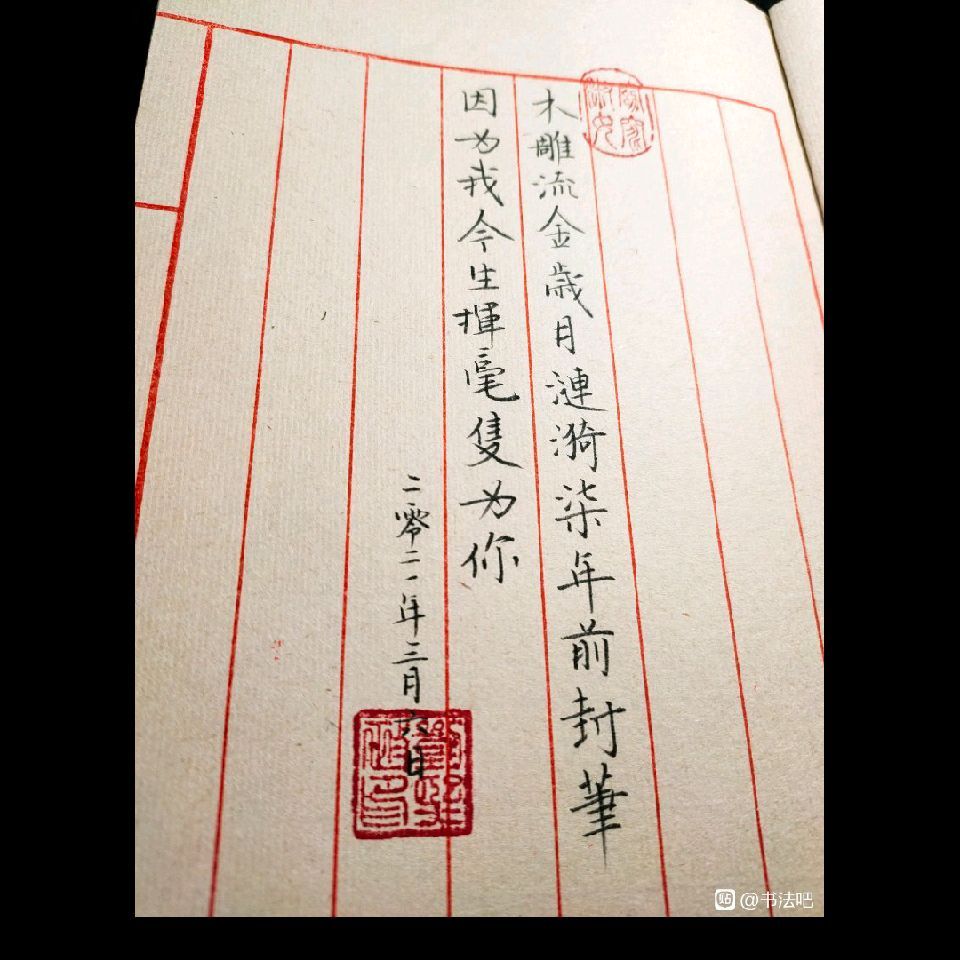 木雕流金歲月漣漪柒年前封筆
因为我今生揮毫隻为你
二零二一年三月六日
@书法吧